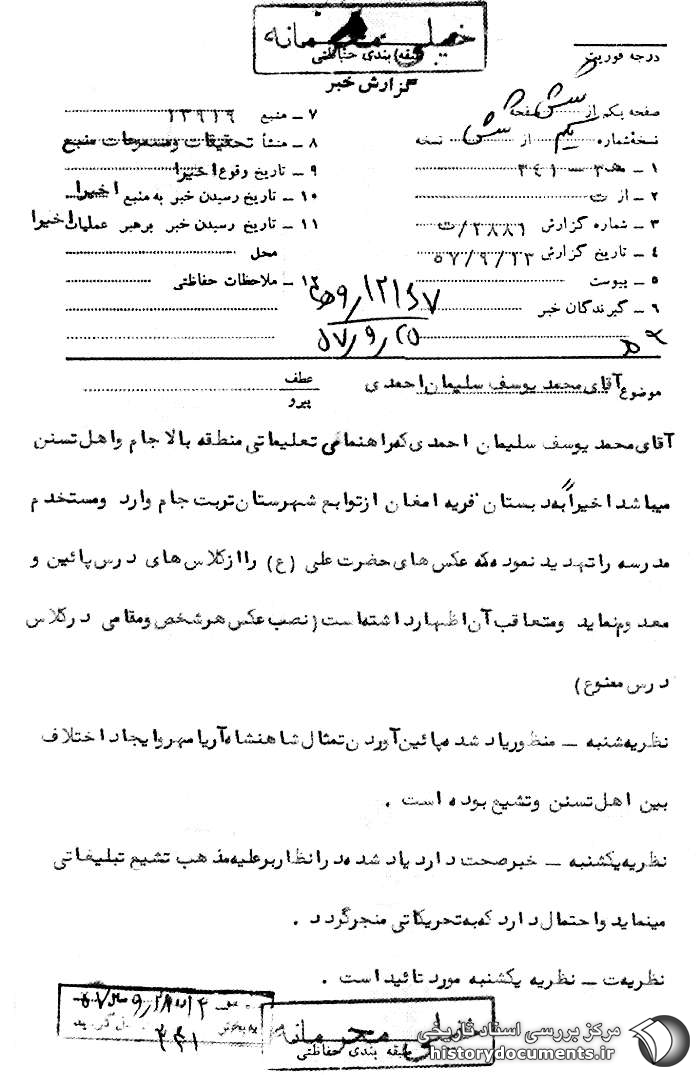 خیلی محرمانه
طبقه بندی حفاظتی
گزارش خبر
درجه فوریت
صفحه یکم از شش صفحه
نسخه شماره یکم از شش نسخه
۱ ـ به ۳۴۱
۲ ـ از ت
۳ ـ شماره گزارش ۲۸۸۶/ت
۴ ـ تاریخ گزارش ۵۷/۹/۲۳
۵ ـ پیوست
۶ ـ گیرندگان خبر
۷ ـ منبع ۱۳۹۱۶
۸ ـ منشأ تحقیقات ومسموعات منبع
۹ ـ تاریخ وقوع اخیرا
۱۰ ـ تاریخ رسیدن خبر به منبع اخیرا
۱۱ ـ تاریخ رسیدن خبر برهبر عملیات اخیرا
محل
۱۲ ـ ملاحظات حفاظتی
۵۷/۹/۲۵
موضوع آقای محمد یوسف سلیمان احمدی
عطف
پیرو
آقای محمد یوسف سلیمان احمدی که راهنمائی تعلیماتی منطقه بالا جام واهل تسنن
میباشد اخیراً به دبستان قریه امغان ازتوابع شهرستان تربت جام وارد ومستخدم
مدرسه را تهدید نموده که عکس های حضرت علی (ع) را ازکلاس های درس پائین و
معدوم نماید ومتعاقب آن اظهارداشته است (نصب عکس هرشخص ومقامی درکلاس
درس ممنوع)
نظریه شنبه ـ منظور یاد شده پائین آوردن تمثال شاهنشاه آریامهر وایجاد اختلاف
بین اهل تسنن وتشیع بوده است .
نظریه یکشنبه ـ خبرصحت دارد یاد شده در انظار برعلیه مذهب تشیع تبلیغاتی
مینماید واحتمال دارد که به تحریکاتی منجرگردد .
نظریه ت ـ نظریه یکشنبه مورد تائید است .
۳۴۱
خیلی محرمانه
طبقه بندی حفاظتی
مرکز بررسی اسناد تاریخی
historydocuments.ir